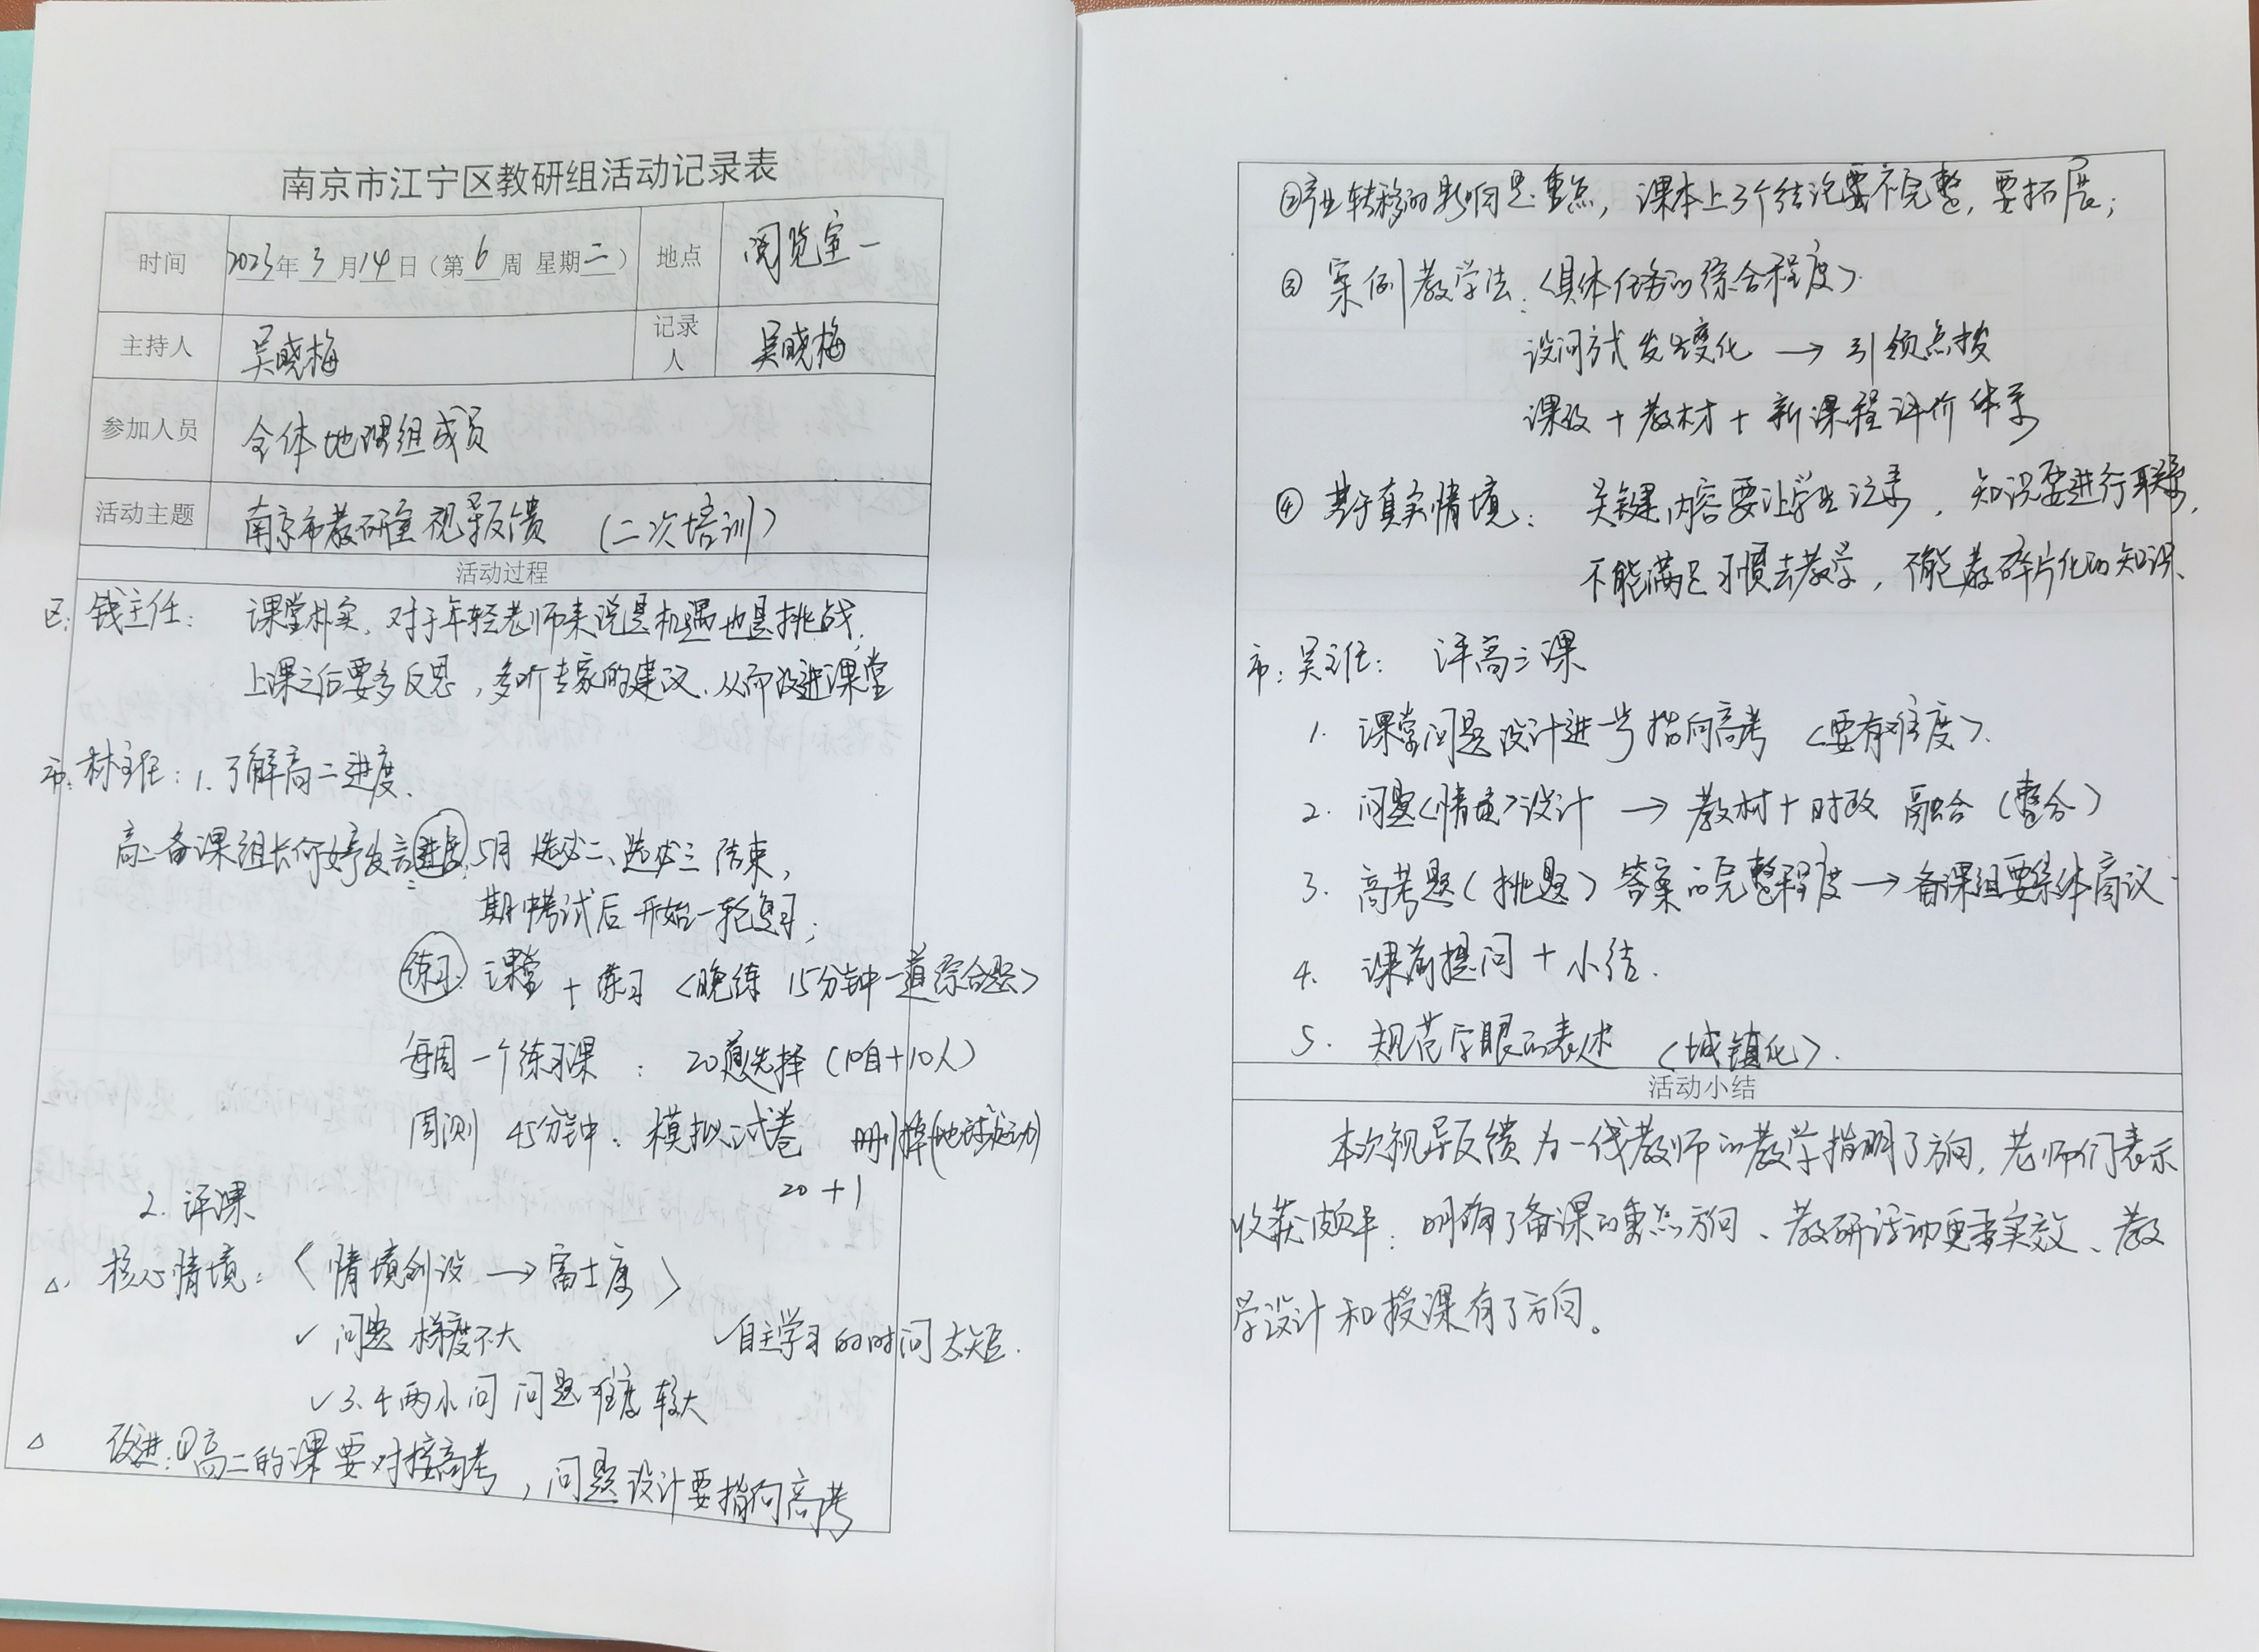 南京市江宁区教研组活动记录表
时间 2023年 3 月 14 日（第 6 周 星期 二 ） 地点 阅览室一
主持人 吴晓梅 记录人 吴晓梅
参加人员 全体地理组成员
活动主题 南京市教研室视导反馈 （二次培训）
活动过程
区: 钱主任: 课堂朴实, 对于年轻老师来说是机遇也是挑战,
上课之后要多反思, 多听专家的建议, 从而改进课堂
市: 林主任: 1. 了解高二进度.
高二备课组长何婷发言 进度: 5月 选必二、选必三 结束,
期中考试后开始一轮复习;
练习: 课堂 + 练习 <晚练 15分钟一道综合题>
每周一个练习课 : 20道选择 (10自+10人)
周测 45分钟. 模拟试卷 删掉(地球运动)
20 + 1
2. 评课
△. 核心情境: 〈情境创设 → 富士康〉
✓ 问题梯度不大 ✓自主学习的时间太短.
✓ 3.4两小问 问题难度较大
△ 改进: ①高二的课要对接高考, 问题设计要指向高考
②产业转移的影响是重点, 课本上3个结论不完整, 要拓展;
③ 案例教学法: <具体任务的综合程度>.
设问方式发生变化 → 引领点拨
课改 + 教材 + 新课程评价体系
④ 基于真实情境: 关键内容要让学生记录, 知识要进行联系,
不能满足习惯去教学, 不能教碎片化的知识、
市: 吴主任: 评高三课
1. 课堂问题设计进一步指向高考 <要有难度>.
2. 问题<情境>设计 → 教材+时政 融合 (整合)
3. 高考题(挑题) 答案的完整程度 → 备课组要集体商议.
4. 课前提问 + 小结.
5. 规范学眼的表述 <城镇化>.
活动小结
本次视导反馈为一线教师的教学指明了方向, 老师们表示
收获颇丰: 明确了备课的重点方向、教研活动更要实效、教
学设计和授课有了方向。